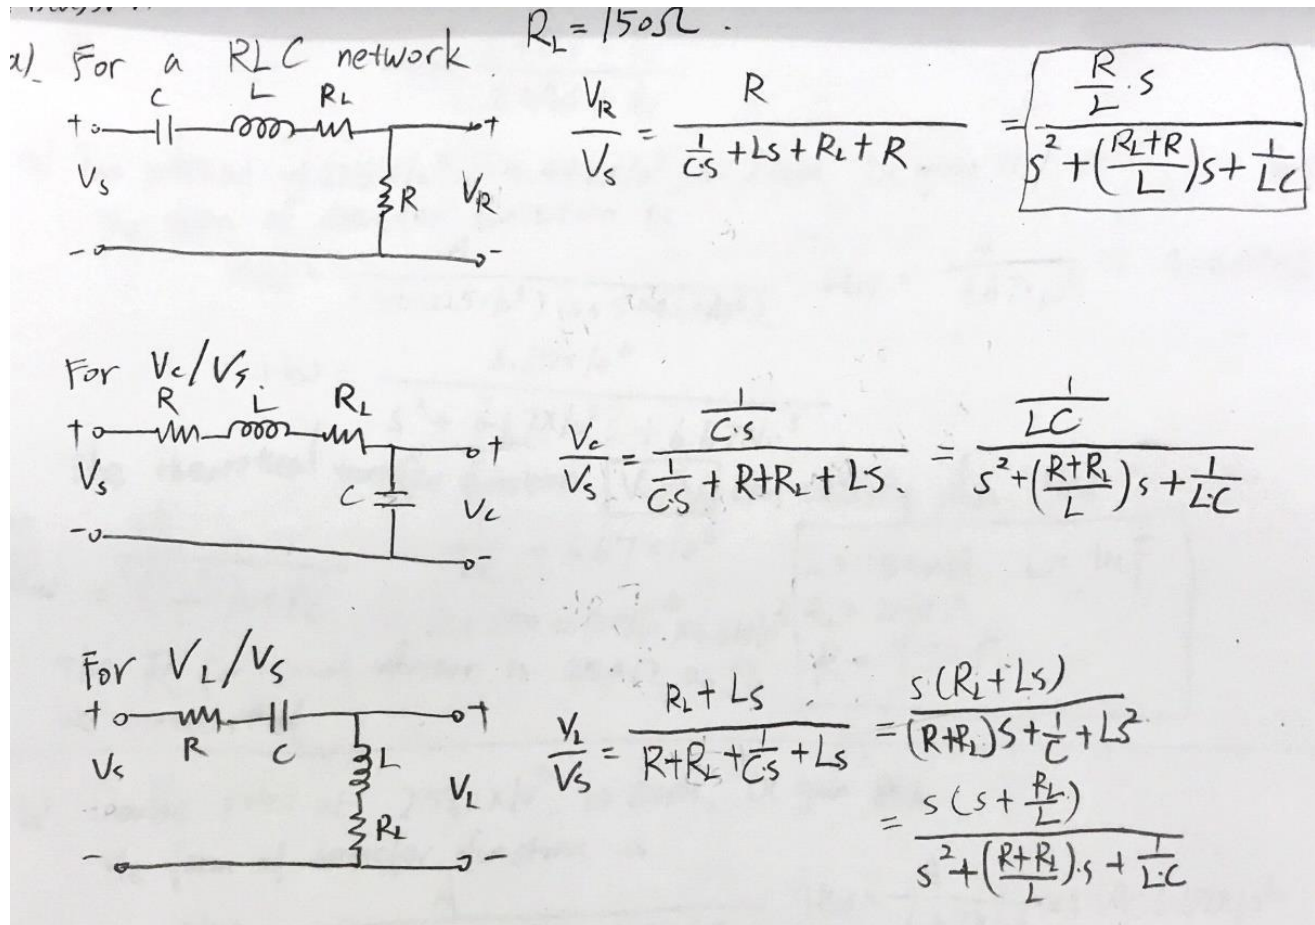 R_L = 150Ω.
a) For a RLC network
C L R_L
+ +
V_S R V_R
- -
V_R/V_S = R / (1/(C·S) + LS + R_L + R) = (R/L · S) / (S² + ((R_L+R)/L)S + 1/(LC))
For V_c/V_s.
R L R_L
+ +
V_s C V_c
- -
V_c/V_s = (1/(C·S)) / (1/(C·S) + R+R_L + LS) = (1/(LC)) / (S² + ((R+R_L)/L)S + 1/(L·C))
For V_L/V_S
+ +
R C L
V_s V_L
R_L
- -
V_L/V_S = (R_L + LS) / (R+R_L + 1/(C·S) + LS) = S(R_L+LS) / ((R+R_L)S + 1/C + LS²)
= S(S + R_L/L) / (S² + ((R+R_L)/L)·S + 1/(L·C))